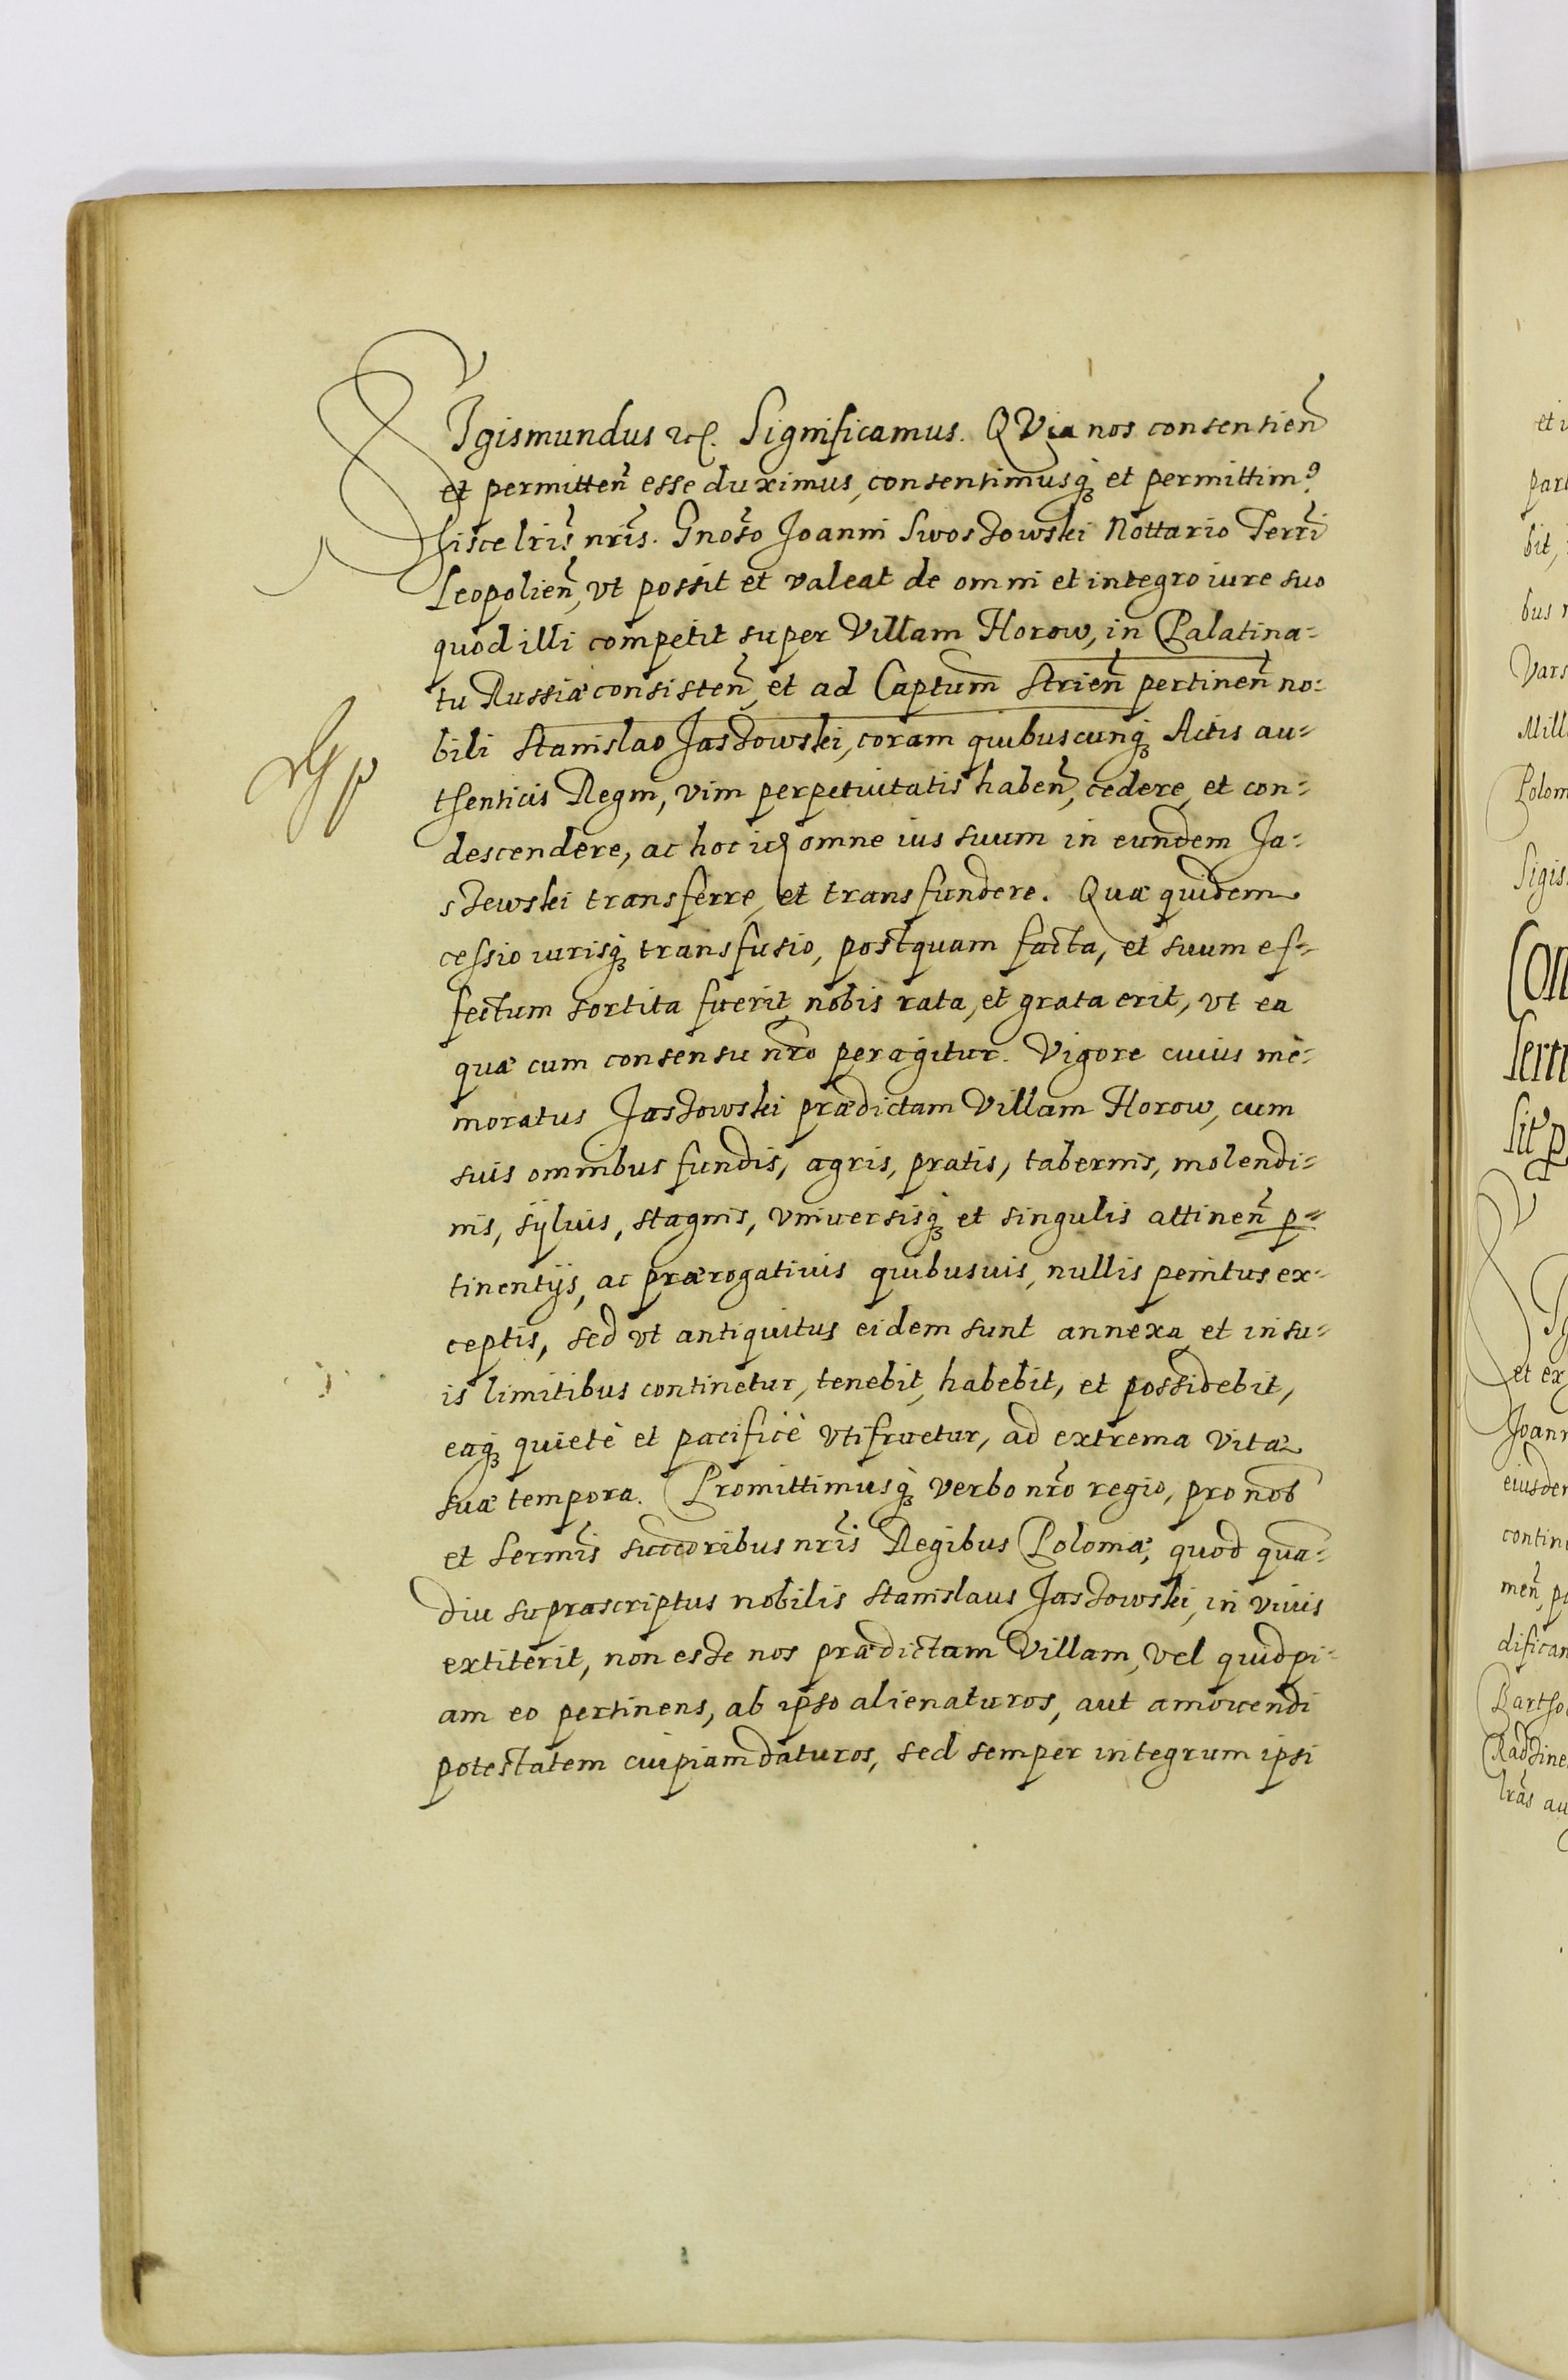 SIgismundus etc. Significamus. QVia nos consentien̄
et permitten̄ esse duximus, consentimusq̨ et permittim9
hisce lr̄is nr̄is. Gnōso Joanni Swoszowski Nottario Terr̄i
Leopolien̄, vt possit et valeat de omni et integro iure suo
quod illi competit super Villam Horow, in Palatina=
tu Russiæ consisten̄, et ad Captum̄ Strien̄ pertinen̄ no=
bili Stanislao Jaszowski, coram quibuscunq̨ Actis au=
thenticis Regni, vim perpetuitatis haben̄, cedere, et con=
descendere, ac hoc omne ius suum in eundem Ja=
szewski transferre, et transfundere. Quæ quidem
cessio iurisq̨ transfusio, postquam facta, et suum ef=
fectum sortita fuerit, nobis rata, et grata erit, vt ea
quæ cum consensu nr̄o peragitur. Vigore cuius me=
moratus Jaszowski prædictam Villam Horow, cum
suis omnibus fundis, agris, pratis, tabernis, molendi=
nis, sÿluis, stagnis, vniuersisq̨ et singulis attinen̄ p=
tinentijs, ac prærogatiuis quibusuis, nullis penitus ex=
ceptis, sed vt antiquitus eidem sunt annexa, et in su=
is limitibus continetur, tenebit, habebit, et possidebit,
eaq̨ quietè et pacificè vtifruetur, ad extrema vitæ
suæ tempora. Promittimusq̨ verbo nr̄o regio, pro nob
et Serm̄is succoribus nr̄is Regibus Poloniæ, quod qua=
diu supræscriptus nobilis Stanislaus Jaszowski, in viuis
extiterit, non esse nos prædictam Villam, vel quidpi=
am eo pertinens, ab ipso alienaturos, aut amouendi
potestatem cuipiam daturos, sed semper integrum ipsi
et
par
bit,
bus
Vars
Mill
Polon
Sigis
Con
Sit p
et ex
Joann
eiusdem
contin
men̄, p
difican
Bartho
lr̄as au